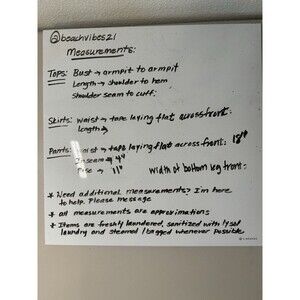 @beachvibes21
Measurements:
Tops: Bust → armpit to armpit
Length → Shoulder to hem
Shoulder seam to cuff:
Skirts: Waist → tape laying flat across front:
Length →
Pants: Waist → tape laying flat across front: 18"
Inseam → 4"
Rise → 11" Width of bottom leg front:
* Need additional measurements? I'm here
to help. Please message
* all measurements are approximations
* Items are freshly laundered, sanitized with lysol
laundry and steamed / bagged whenever possible